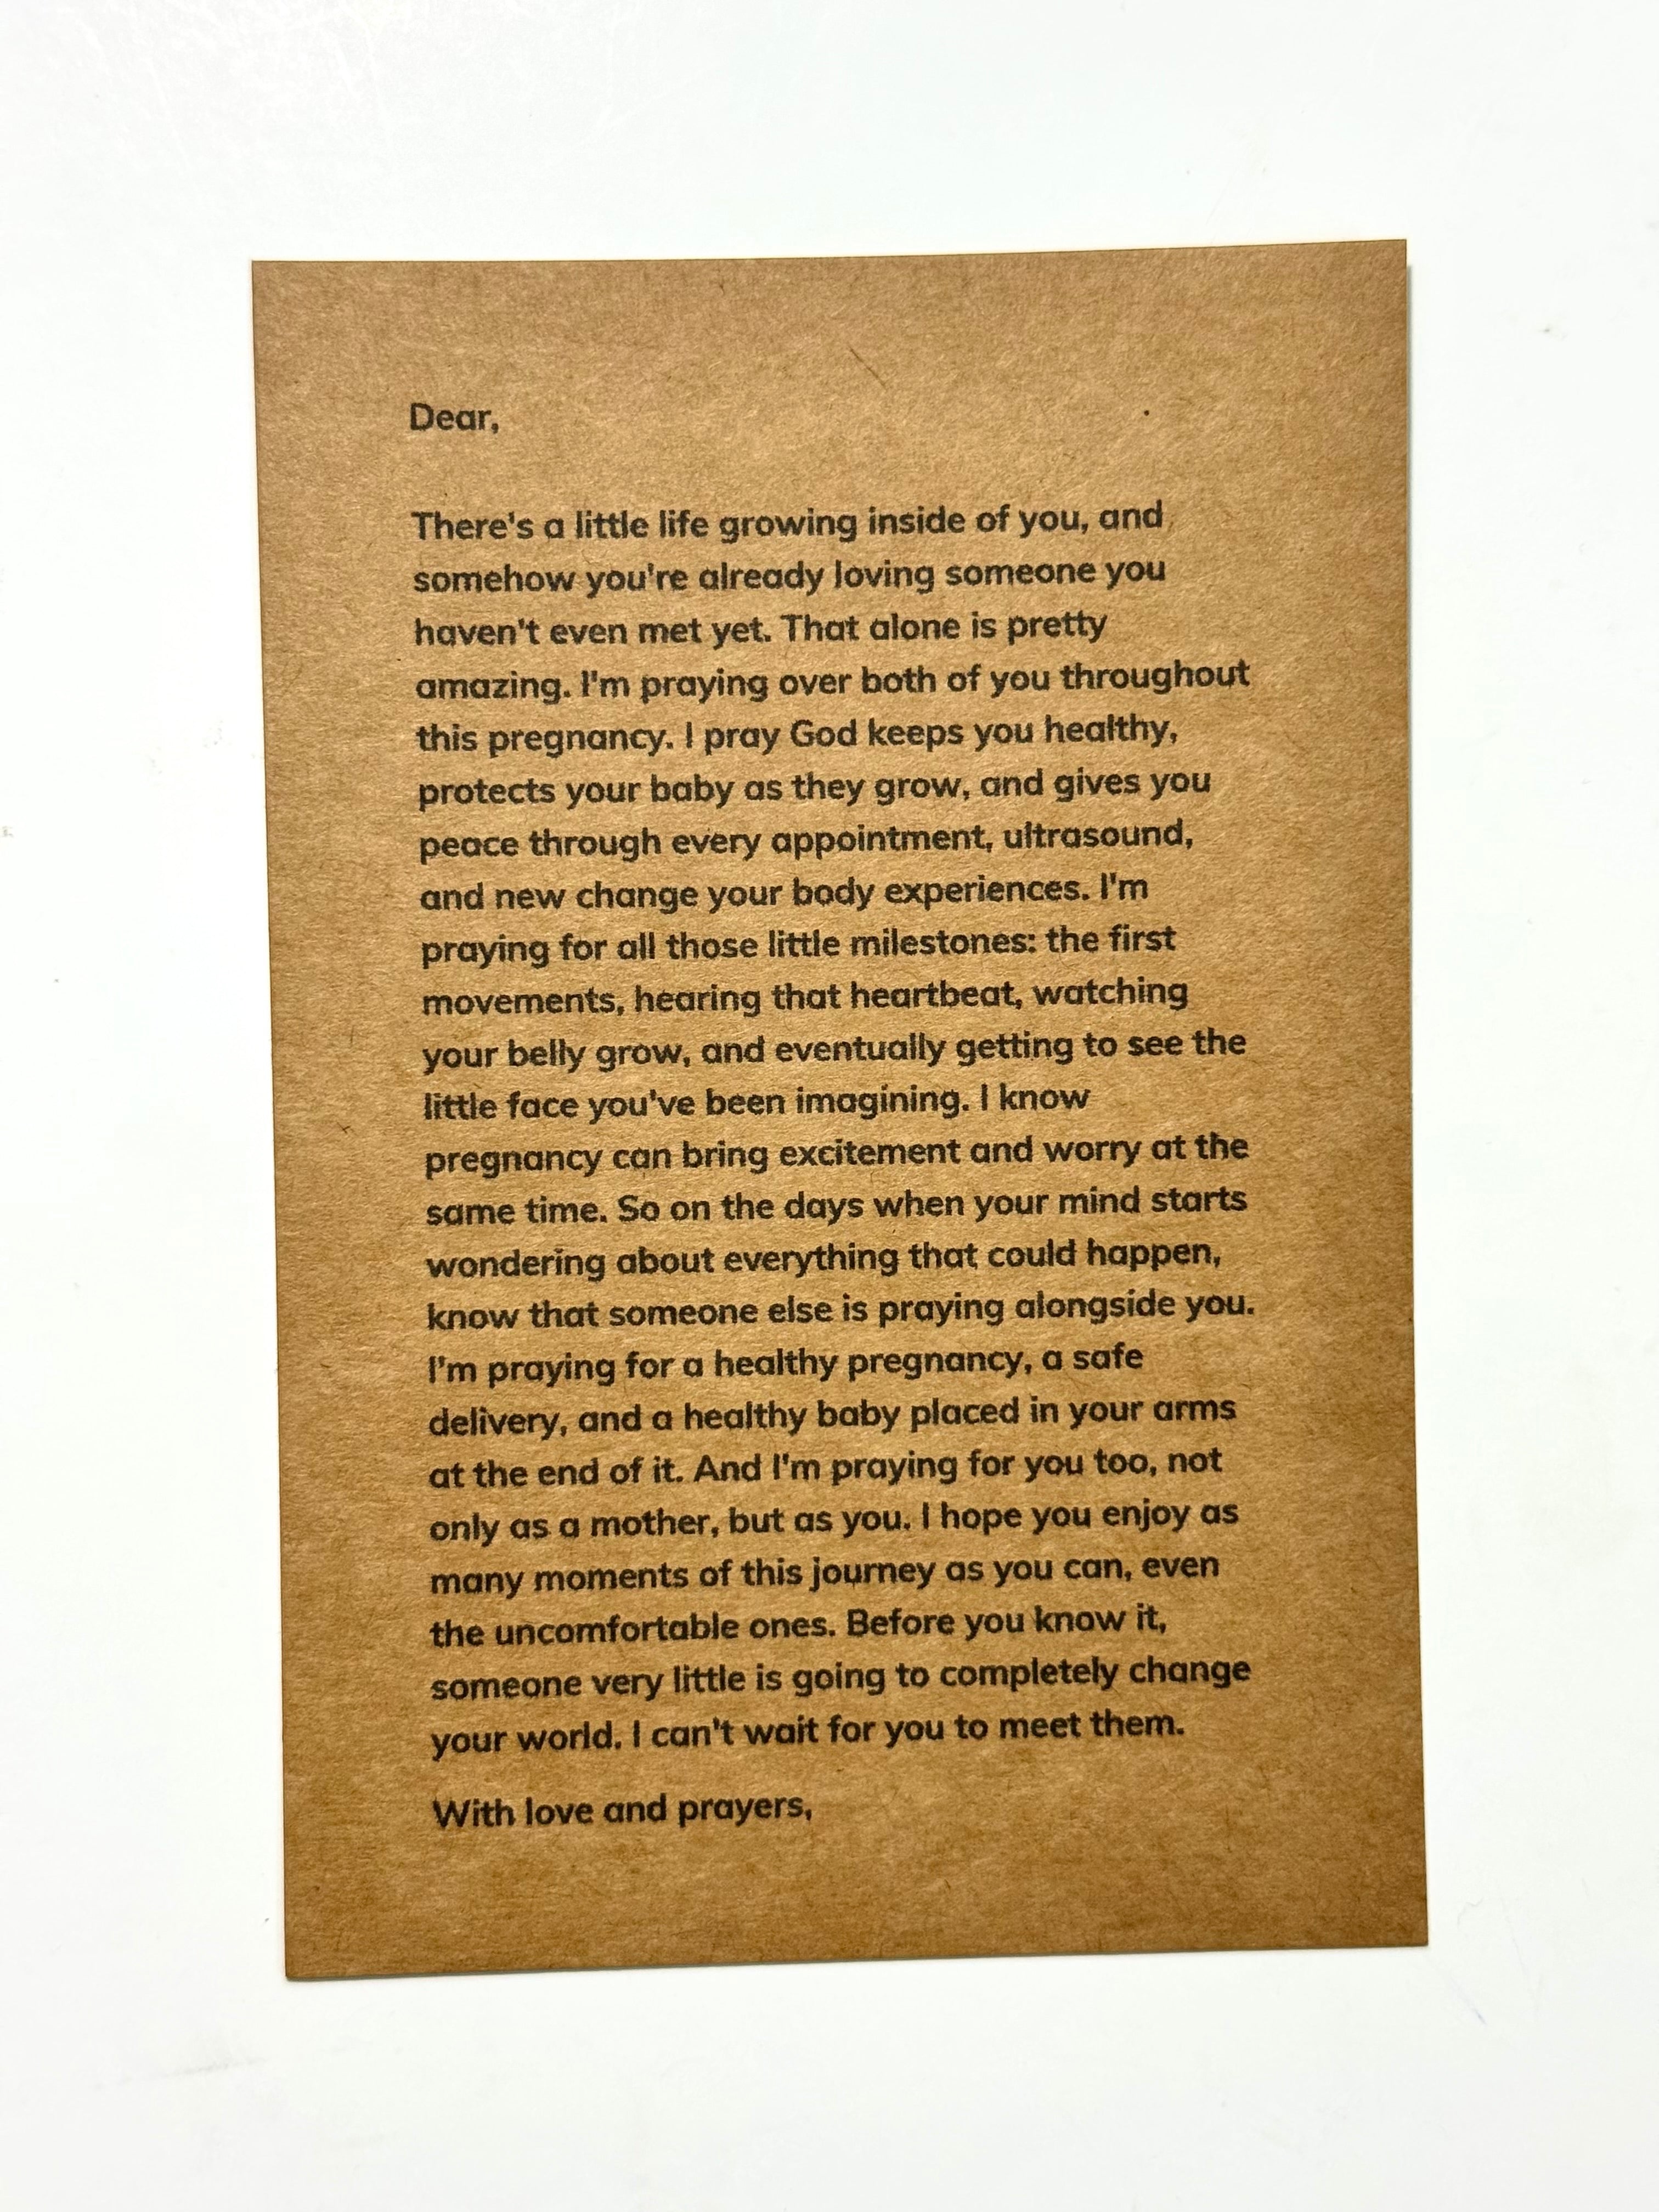 Dear,
There's a little life growing inside of you, and
somehow you're already loving someone you
haven't even met yet. That alone is pretty
amazing. I'm praying over both of you throughout
this pregnancy. I pray God keeps you healthy,
protects your baby as they grow, and gives you
peace through every appointment, ultrasound,
and new change your body experiences. I'm
praying for all those little milestones: the first
movements, hearing that heartbeat, watching
your belly grow, and eventually getting to see the
little face you've been imagining. I know
pregnancy can bring excitement and worry at the
same time. So on the days when your mind starts
wondering about everything that could happen,
know that someone else is praying alongside you.
I'm praying for a healthy pregnancy, a safe
delivery, and a healthy baby placed in your arms
at the end of it. And I'm praying for you too, not
only as a mother, but as you. I hope you enjoy as
many moments of this journey as you can, even
the uncomfortable ones. Before you know it,
someone very little is going to completely change
your world. I can't wait for you to meet them.
With love and prayers,